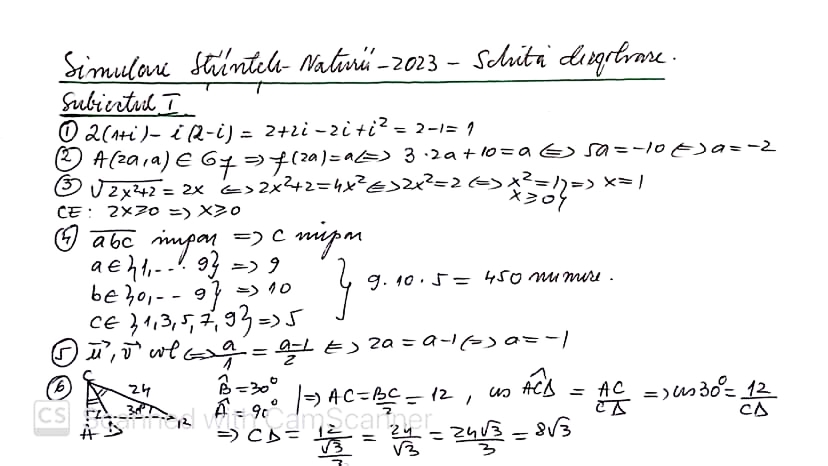 Simulare Științele Naturii - 2023 - Schiță dezvoltare.
Subiectul I
① 2(1+i) - i(2-i) = 2+2i-2i+i² = 2-1 = 1
② A(2a,a) ∈ Gf => f(2a)=a <=> 3·2a+10=a <=> 5a=-10 <=> a=-2
③ √2x²+2 = 2x <=> 2x²+2=4x² <=> 2x²=2 <=> x²=1 } => x=1
x≥0 }
CE: 2x≥0 => x≥0
④ abc impar => c impar
a∈{1,...9} => 9
b∈{0,--9} => 10 } 9·10·5 = 450 numere.
c∈{1,3,5,7,9} => 5
⑤ u, v col <=> a/1 = a-1/2 <=> 2a = a-1 <=> a=-1
⑥ C 24 B̂=30° |=> AC=BC/2=12, cos ACD = AC/CD => cos30°=12/CD
30° Â=90°
A D
=> CD = 12/√3/2 = 24/√3 = 24√3/3 = 8√3
CS Scanned with CamScanner